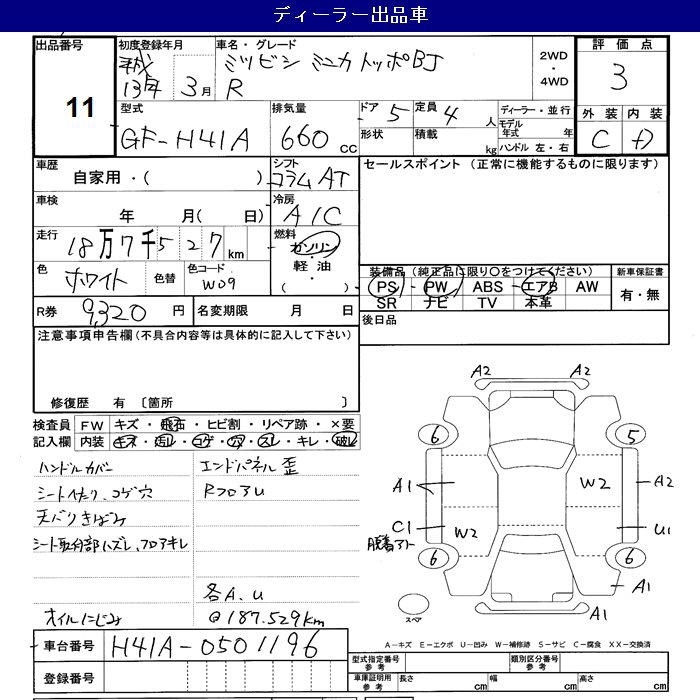 ディーラー出品車
出品番号
11
初度登録年月
平成
13年 3月
車名・グレード
ミツビシ ミニカ トッポBJ
R
2WD
・
4WD
評価点
3
型式
GF-H41A
排気量
660 cc
ドア 5
定員 4 人
形状
積載 kg
ディーラー・並行
モデル年式 年
ハンドル 左・右
外装 内装
C D
車歴
自家用・( )
シフト
コラムAT
セールスポイント (正常に機能するものに限ります)
車検
年 月( 日)
冷房
A/C
走行
18万7千527km
燃料
ガソリン
・
軽油
( ・ )
色
ホワイト
色替
色コード
W09
装備品 (純正品に限り○をつけてください)
PS・PW・ABS・エアB AW
SR ナビ TV 本革
新車保証書
有・無
R券 9,320 円
名変期限 月 日
後日品
注意事項申告欄(不具合内容等は具体的に記入して下さい)
修復歴 有 〔箇所 〕
検査員記入欄
FW キズ・飛石・ヒビ割・リペア跡・×要
内装 キズ・汚レ・コゲ・穴・スレ・キレ・破レ
ハンドルカバー
エンドパネル歪
シートヘタリ、コゲ穴
RフロアU
天バリきばみ
シート取付部ハズレ、フロアキレ
各A.U
オイルにじみ
@187.529km
A2 A2
6 5
A1 W2 A2
C1 W2 U1
脱着アト
6 6
A1
A1
スペア
A-キズ E-エクボ U-凹み W-補修跡 S-サビ C-腐食 XX-交換済
車台番号 H41A-0501196
登録番号
型式指定番号
参考
類別区分番号
参考
車庫証明用
参考
長さ cm
幅 cm
高さ cm